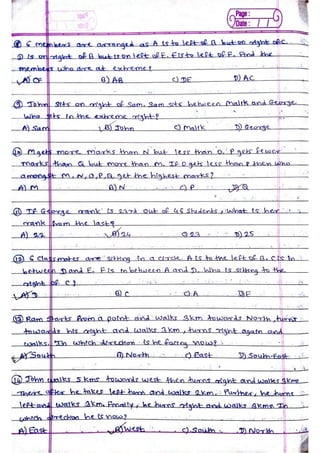 Page:
Date: / /
⑧ 6 members are arranged as A is to left of B but on right of C.
D is on right of B but is on left of E. E is to left of F. Find the
members who are at extreme?
A) CF B) AB C) DE D) AC
⑨ John sits on right of Sam. Sam sits between Malik and George
Who sits in the extreme right?
A) Sam B) John C) Malik D) George
⑩ M gets more marks than N but less than O. P gets fewer
marks than Q but more than M. If O gets less than P then who
amongst M, N, O, P, Q get the highest marks?
A) M B) N C) P D) Q
⑪ If George rank is 23rd out of 46 students, what is her
rank from the last?
A) 22 B) 24 C) 23 D) 25
⑫ 6 Classmates are sitting in a circle. A is to the left of B. C is in
between D and E. F is in between A and D. Who is sitting to the
right of C?
A) D B) C C) A D) F
⑬ Ram starts from a point and walks 3km towards North, turns
towards his right and walks 3km, turns right again and
walks. In which direction is he facing now?
A) South B) North C) East D) South-East
⑭ John walks 5 kms towards west then turns right and walks 3kms
There after he takes left turn and walks 2km. Further, he turns
left and walks 3km. Finally, he turns right and walks 3kms In
which direction he is now?
A) East B) West C) South D) North